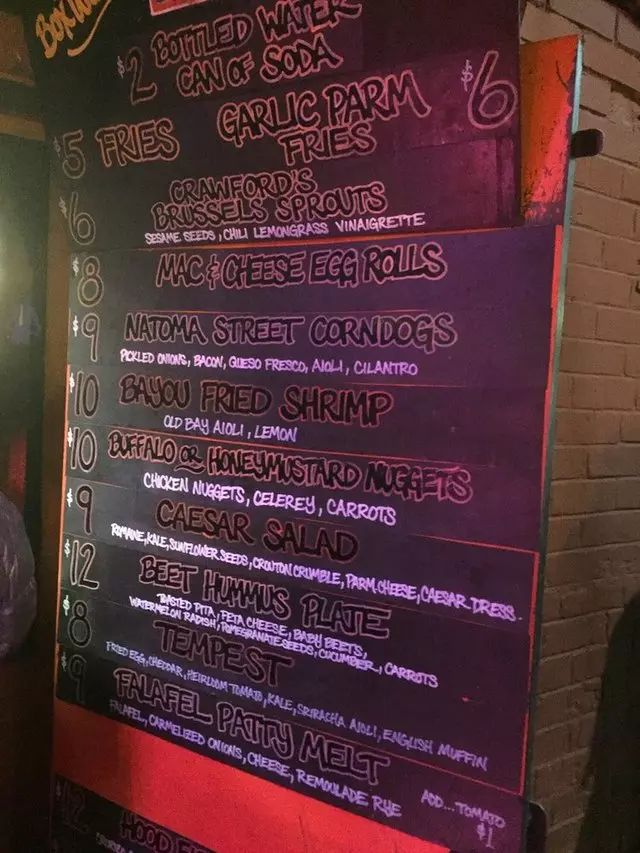 $2 BOTTLED WATER
CAN OF SODA
$5 FRIES GARLIC PARM $6
FRIES
$6 CRAWFORD'S
BRUSSELS SPROUTS
SESAME SEEDS, CHILI LEMONGRASS VINAIGRETTE
$8 MAC & CHEESE EGG ROLLS
$9 NATOMA STREET CORNDOGS
PICKLED ONIONS, BACON, QUESO FRESCO, AIOLI, CILANTRO
$10 BAYOU FRIED SHRIMP
OLD BAY AIOLI, LEMON
$10 BUFFALO OR HONEYMUSTARD NUGGETS
CHICKEN NUGGETS, CELEREY, CARROTS
$9 CAESAR SALAD
ROMAINE, KALE, SUNFLOWER SEEDS, CROUTON CRUMBLE, PARM. CHEESE, CAESAR DRESS.
$12 BEET HUMMUS PLATE
TOASTED PITA, FETA CHEESE, BABY BEETS,
WATERMELON RADISH, POMEGRANATE SEEDS, CUCUMBER, CARROTS
$8 TEMPEST
FRIED EGG, CHEDDAR, HEIRLOOM TOMATO, KALE, SRIRACHA AIOLI, ENGLISH MUFFIN
$9 FALAFEL PATTY MELT
FALAFEL, CARMELIZED ONIONS, CHEESE, REMOULADE, RYE
ADD... TOMATO
$1
$12 HOOD